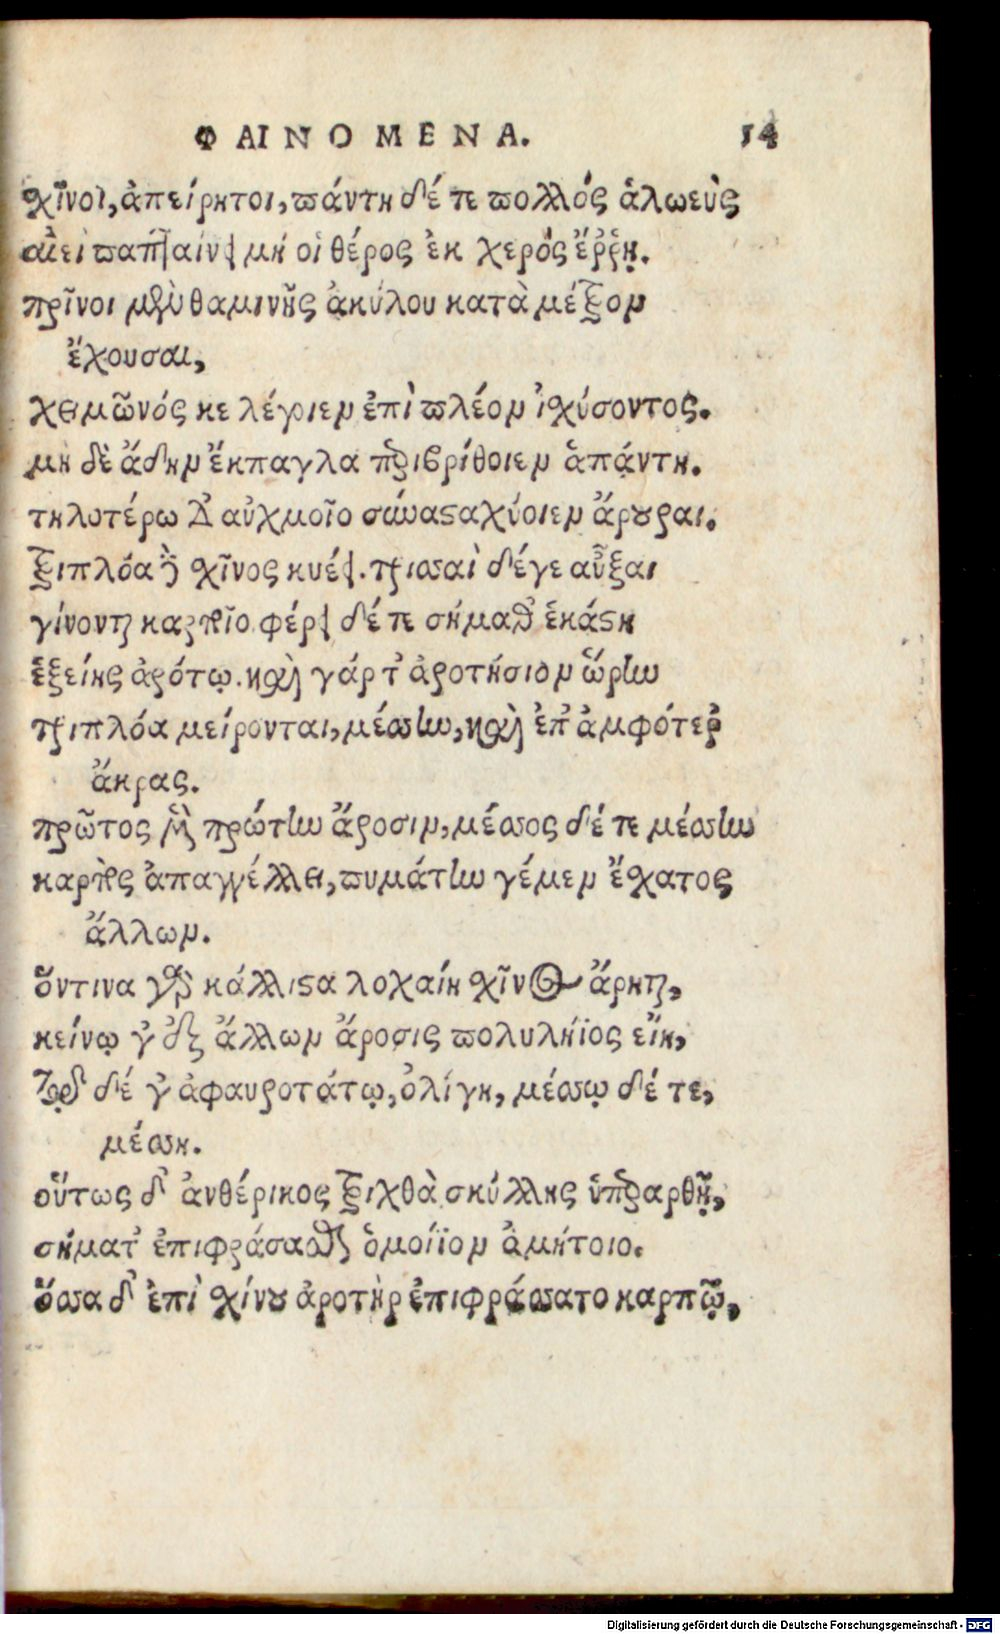 ΦΑΙΝΟΜΕΝΑ. 54
χῖνοι, ἀπείρητοι, πάντη δέ τε πολλός ἁλωεὺς
αἰεὶ παπταίνει μή οἱ θέρος ἐκ χερός ἔῤῥῃ.
πρῖνοι μὲν θαμινῆς ἀκύλου κατὰ μέτρον
ἔχουσαι,
χειμῶνός κε λέγοιεν ἐπὶ πλέον ἰχύσοντος.
μὴ δὲ ἄδην ἔκπαγλα περιβρίθοιεν ἁπάντη.
τηλοτέρω δ' αὐχμοῖο συνασταχύοιεν ἄρουραι.
τριπλόα δὲ χῖνος κυέει. τρισσαὶ δέ γε αὖξαι
γίνονται καρποῖο φέρει δέ τε σήμαθ' ἑκάστη
ἑξείης ἀρότῳ. καὶ γάρ τ' ἀροτήσιον ὥρην
τριπλόα μείρονται, μέσσην, καὶ ἐπ' ἀμφότερα
ἄκρας.
πρῶτος μὲν πρώτην ἄροσιν, μέσσος δέ τε μέσσην
καρπὸς ἀπαγγέλλει, πυμάτην γέμεν ἔχατος
ἄλλων.
ὅντινα γὰρ κάλλιστα λοχαίη χῖνος ἄρηται,
κείνῳ γ' ἐξ ἄλλων ἄροσις πολυλήϊος εἴη,
τῷ δέ γ' ἀφαυροτάτῳ, ὀλίγη, μέσσῳ δέ τε,
μέσση.
οὕτως δ' ἀνθέρικος τριχθὰ σκύλλης ὑπεραρθῇ,
σήματ' ἐπιφράσσασθαι ὁμοίϊον ἀμήτοιο.
ὅσσα δ' ἐπὶ χίνου ἀροτὴρ ἐπιφράσσατο καρπῷ,
Digitalisierung gefördert durch die Deutsche Forschungsgemeinschaft - DFG